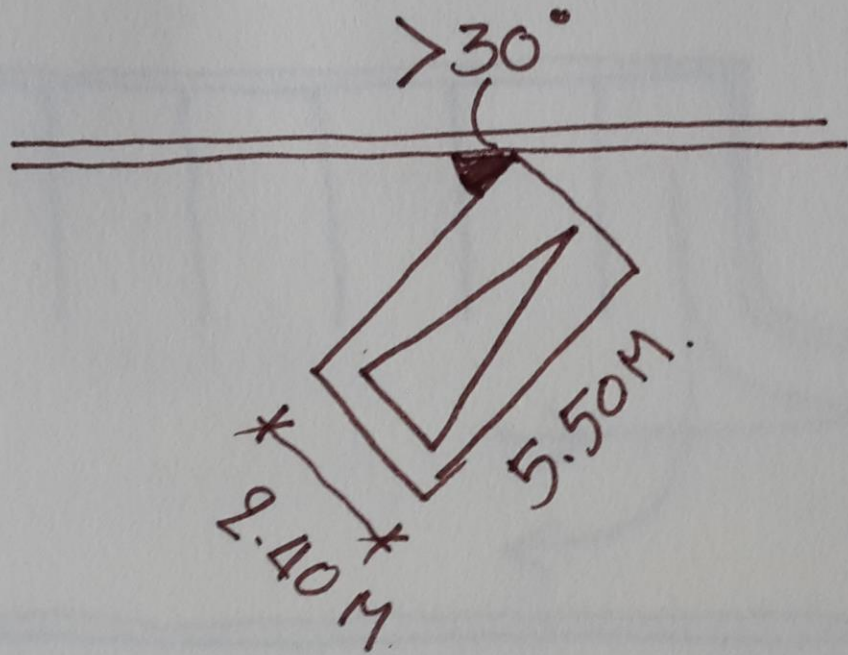 >30°
5.50M.
2.40 M